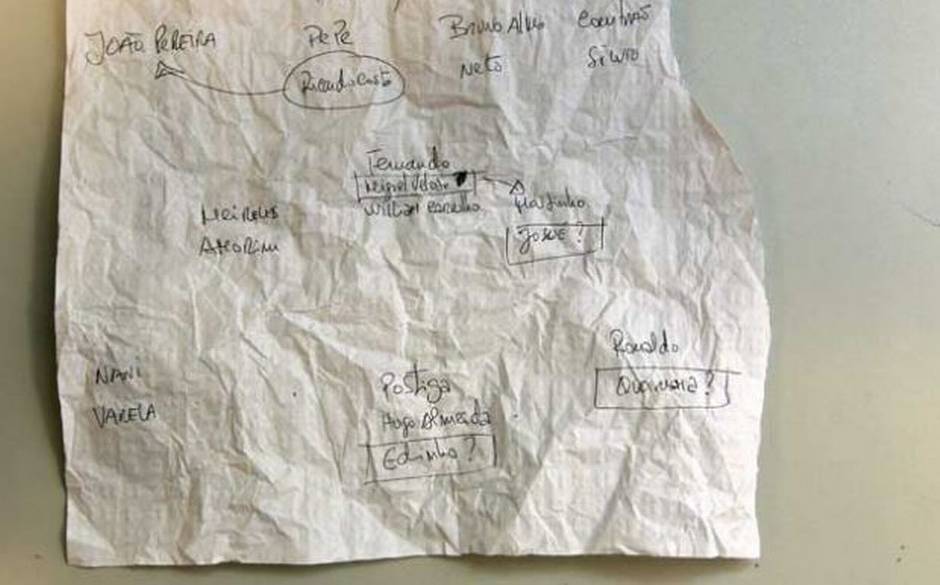 JOÃO PEREIRA PEPE BRUNO ALVES COENTRÃO
Ricardo Costa Neto Silvio
Fernando
Miguel Veloso
William Carvalho Moutinho
MEIRELES
AMORIM JOSUÉ ?
Ronaldo
NANI Postiga Quaresma ?
VARELA Hugo Almeida
Edinho ?